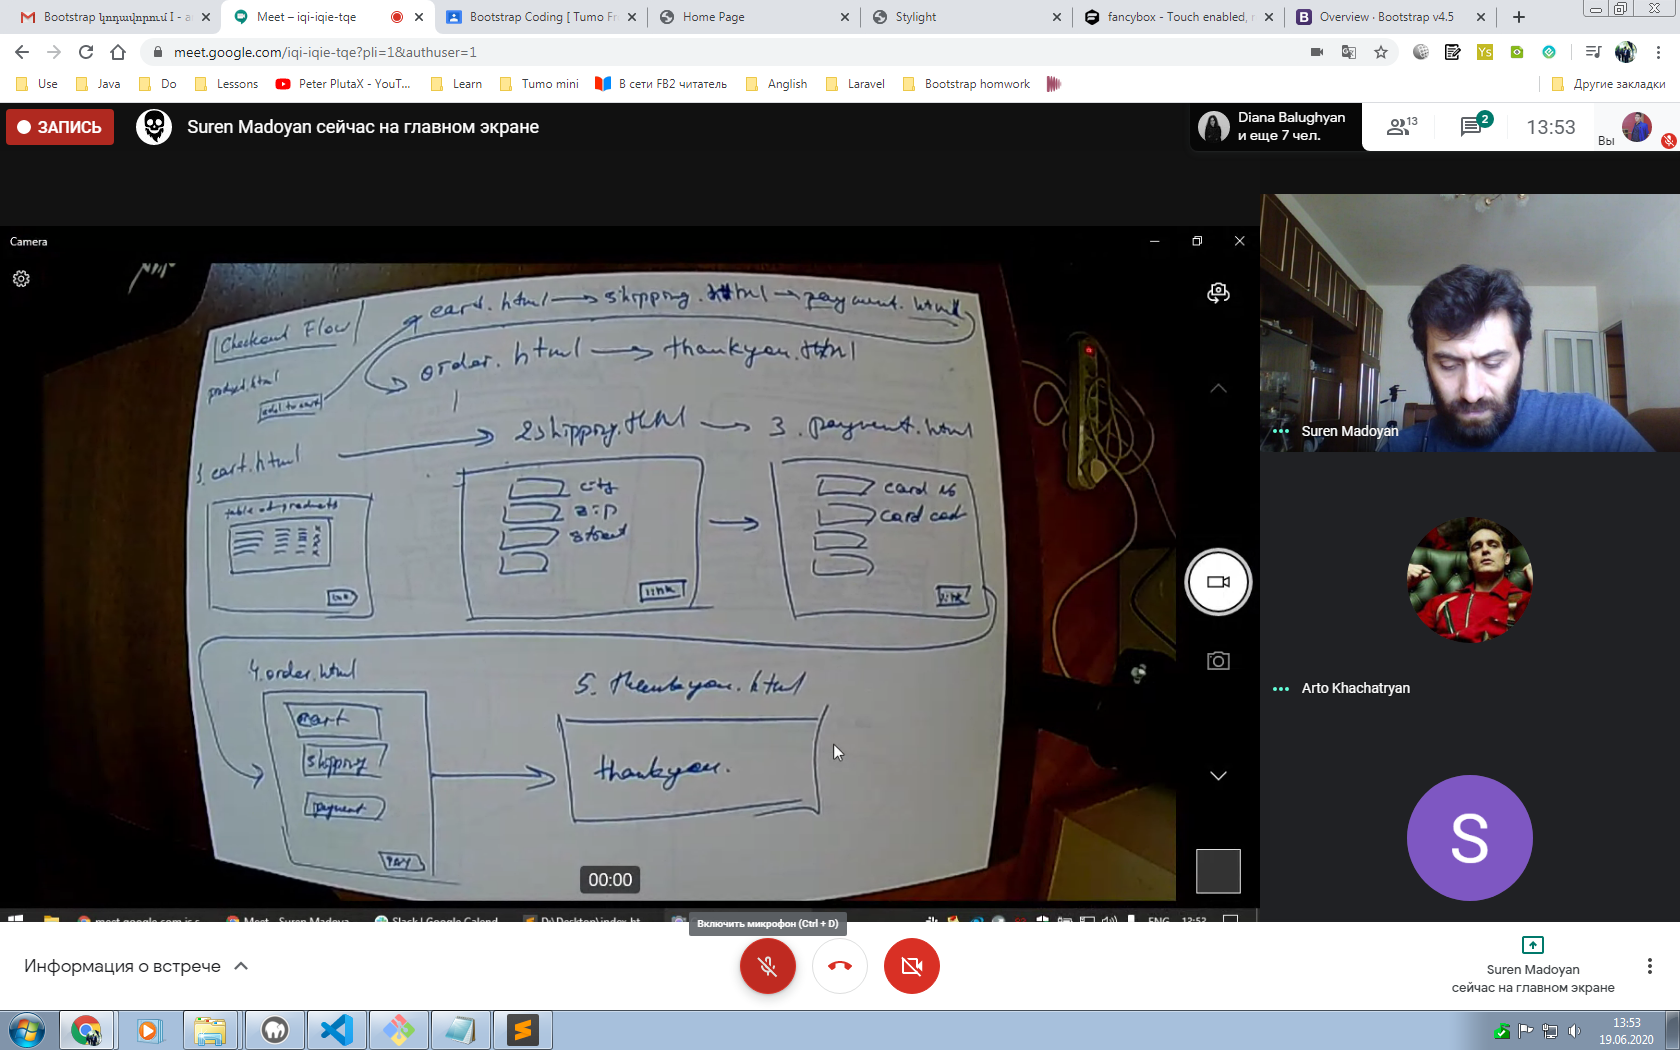 Bootstrap կոդավորում I - a
Meet – iqi-iqie-tqe
Bootstrap Coding [ Tumo Fr
Home Page
Stylight
fancybox - Touch enabled,
Overview · Bootstrap v4.5
meet.google.com/iqi-iqie-tqe?pli=1&authuser=1
Ys
Use
Java
Do
Lessons
Peter PlutaX - YouT...
Learn
Tumo mini
В сети FB2 читатель
Anglish
Laravel
Bootstrap homwork
Другие закладки
ЗАПИСЬ
Suren Madoyan сейчас на главном экране
Diana Balughyan
и еще 7 чел.
13
2
13:53
Вы
Camera
Checkout Flow
cart.html → shipping.html → payment.html
order.html → thankyou.html
product.html
add to cart
1. cart.html
2 shipping.html
3. payment.html
table of products
link
city
zip
street
link
card no
card code
link
4. order.html
cart
shipping
payment
pay
5. thankyou.html
thankyou.
00:00
Suren Madoyan
Arto Khachatryan
S
meet.google.com is s
Meet - Suren Madoya
Slack | Google Calend
D:\Desktop\index.ht
ENG
13:53
Включить микрофон (Ctrl + D)
Информация о встрече
Suren Madoyan
сейчас на главном экране
13:53
19.06.2020